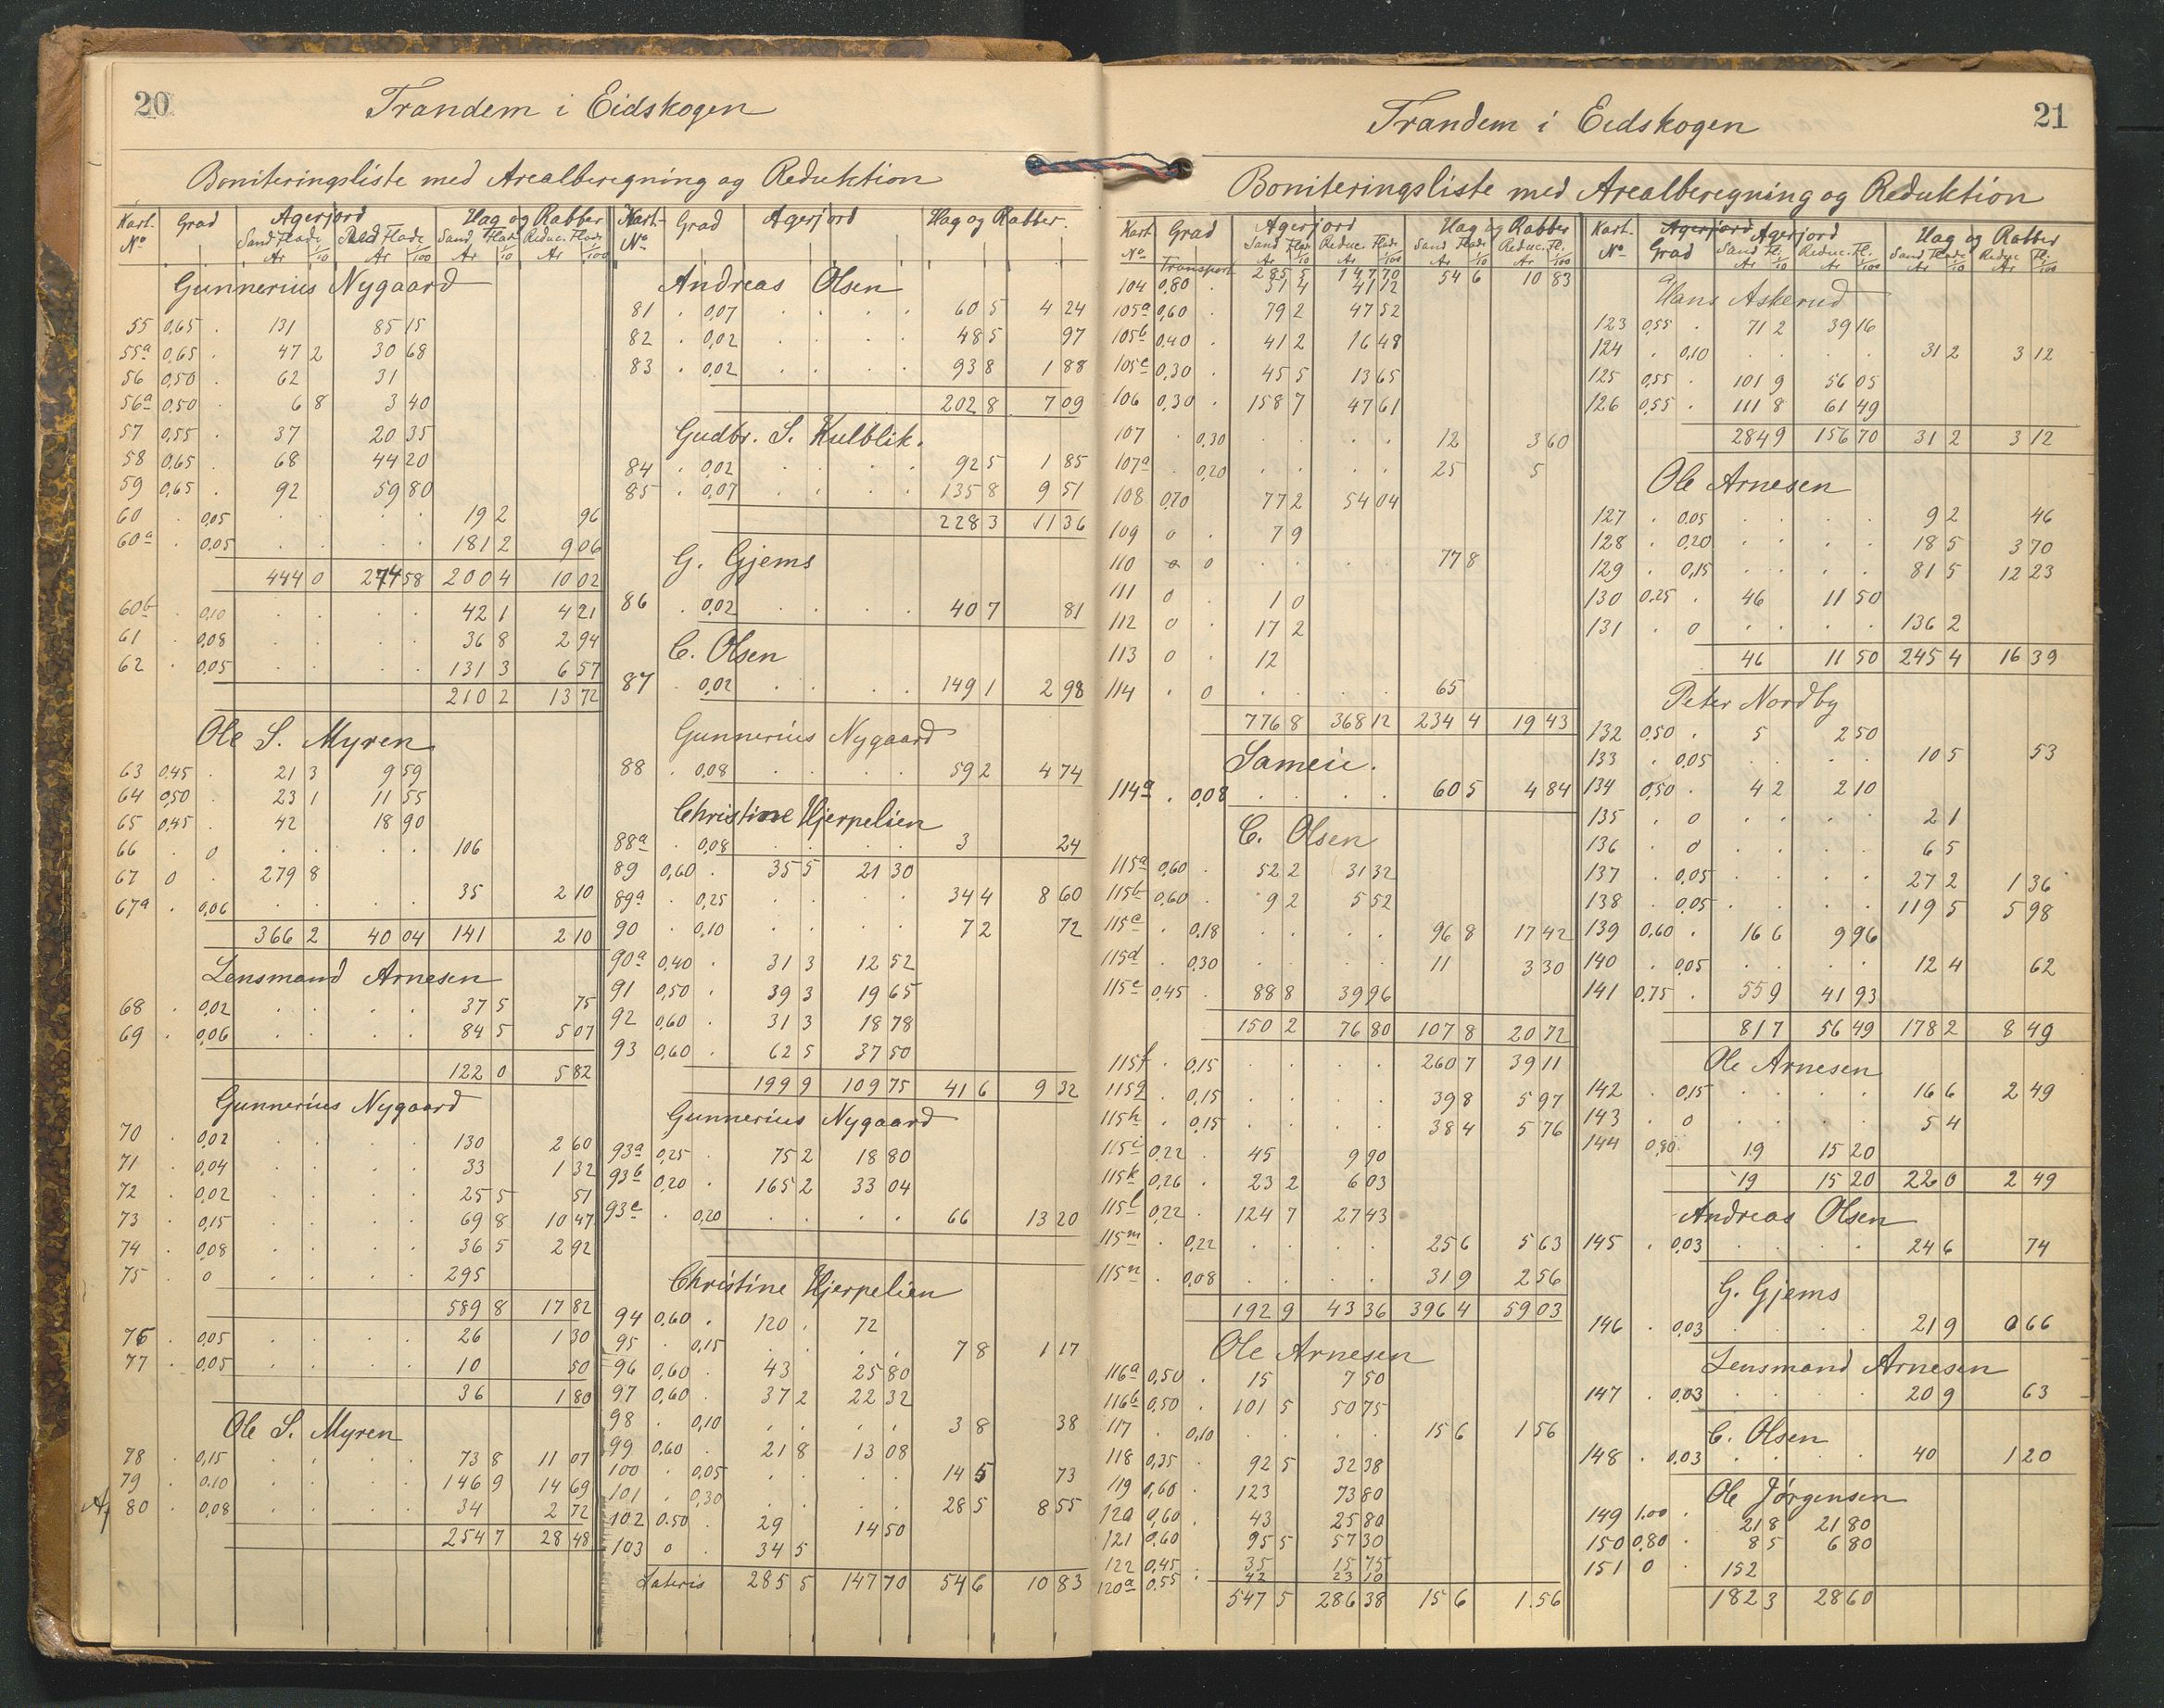 20
Trandem i Eidskogen
Boniteringsliste med Arealberegning og Reduktion
Kart. No Grad Agerjord Hag og Rabber
Sand Flade Red Flade Sand Flade Reduc. Flade
Ar 1/10 Ar 1/100 Ar 1/10 Ar 1/100
Gunnerius Nygaard
55 0,65 . 131 85 15
55a 0,65 . 47 2 30 68
56 0,50 . 62 31
56a 0,50 . 6 8 3 40
57 0,55 . 37 20 35
58 0,65 . 68 44 20
59 0,65 . 92 59 80
60 . 0,05 . . . . 19 2 96
60a . 0,05 . . . . 181 2 9 06
444 0 274 58 200 4 10 02
60b . 0,10 . . . . 42 1 4 21
61 . 0,08 . . . . 36 8 2 94
62 . 0,05 . . . . 131 3 6 57
210 2 13 72
Ole S. Myren
63 0,45 . 21 3 9 59
64 0,50 . 23 1 11 55
65 0,45 . 42 18 90
66 . 0 . . . . 106
67 0 . 279 8
67a . 0,06 . . . . 35 2 10
366 2 40 04 141 2 10
Lensmand Arnesen
68 . 0,02 . . . . 37 5 75
69 . 0,06 . . . . 84 5 5 07
122 0 5 82
Gunnerius Nygaard
70 . 0,02 . . . . 130 2 60
71 . 0,04 . . . . 33 1 32
72 . 0,02 . . . . 25 5 51
73 . 0,15 . . . . 69 8 10 47
74 . 0,08 . . . . 36 5 2 92
75 . 0 . . . . 295
589 8 17 82
76 . 0,05 . . . . 26 1 30
77 . 0,05 . . . . 10 50
36 1 80
Ole S. Myren
78 . 0,15 . . . . 73 8 11 07
79 . 0.10 . . . . 146 9 14 69
80 . 0,08 . . . . 34 2 72
254 7 28 48
Kart- No Grad Agerjord Hag og Rabber.
Andreas Olsen
81 . 0,07 . . . . 60 5 4 24
82 . 0,02 . . . . 48 5 97
83 . 0,02 . . . . 93 8 1 88
202 8 7 09
Gudbr. S. Kulblik.
84 . 0,02 . . . . 92 5 1 85
85 . 0,07 . . . . 135 8 9 51
228 3 11 36
G. Gjems
86 . 0,02 . . . . 40 7 81
C. Olsen
87 . 0,02 . . . . 149 1 2 98
Gunnerius Nygaard
88 . 0,08 . . . . 59 2 4 74
Christine Hjerpelien
88a . 0,08 . . . . 3 24
89 0,60 . 35 5 21 30
89a . 0,25 . . . . 34 4 8 60
90 . 0,10 . . . . 7 2 72
90a 0,40 . 31 3 12 52
91 0,50 . 39 3 19 65
92 0,60 . 31 3 18 78
93 0,60 . 62 5 37 50
199 9 109 75 41 6 9 32
Gunnerius Nygaard
93a 0,25 . 75 2 18 80
93b 0,20 . 165 2 33 04
93c . 0,20 . . . . 66 13 20
Christine Hjerpelien
94 0,60 . 120 . 72
95 . 0,15 . . . . 7 8 1 17
96 0,60 . 43 25 80
97 0,60 . 37 2 22 32
98 . 0,10 . . . . 3 8 38
99 0,60 . 21 8 13 08
100 . 0,05 . . . . 14 5 73
101 . 0,30 . . . . 28 5 8 55
102 0.50 . 29 14 50
103 0 . 34 5
Lateris 285 5 147 70 54 6 10 83
21
Trandem i Eidskogen
Boniteringsliste med Arealberegning og Reduktion
Kart. No Grad Agerjord Hag og Rabber
Sand Flade Reduc. Flade Sand Flade Reduc. Fl.
Ar 1/10 Ar 1/100 Ar 1/10 Ar 1/100
Transport 285 5 147 70 54 6 10 83
104 0,80 . 51 4 41 12
105a 0,60 . 79 2 47 52
105b 0,40 . 41 2 16 48
105c 0,30 . 45 5 13 65
106 0,30 . 158 7 47 61
107 . 0,30 . . . . 12 3 60
107a . 0,20 . . . . 25 5
108 0,70 77 2 54 04
109 0 . 7 9
110 . 0 . . . . 77 8
111 0 . 1 0
112 0 . 17 2
113 0 . 12
114 . 0 . . . . 65
776 8 368 12 234 4 19 43
Sameie.
114a . 0,08 . . . . 60 5 4 84
C. Olsen
115a 0,60 . 52 2 31 32
115b 0,60 . 9 2 5 52
115c . 0,18 . . . . 96 8 17 42
115d . 0,30 . . . . 11 3 30
115e 0,45 . 88 8 39 96
150 2 76 80 107 8 20 72
115f . 0,15 . . . . 260 7 39 11
115g . 0,15 . . . . 39 8 5 97
115h . 0,15 . . . . 38 4 5 76
115i 0,22 . 45 9 90
115k 0,26 . 23 2 6 03
115l 0,22 . 124 7 27 43
115m . 0,22 . . . . 25 6 5 63
115n . 0,08 . . . . 31 9 2 56
192 9 43 36 396 4 59 03
Ole Arnesen
116a 0,50 . 15 7 50
116b 0,50 . 101 5 50 75
117 . 0,10 . . . . 15 6 1 56
118 0,35 . 92 5 32 38
119 0,60 . 123 73 80
120 0,60 . 43 25 80
121 0,60 95 5 57 30
122 0,45 . 35 15 75
120a 0,55 . 42 23 10
547 5 286 38 15 6 1.56
Kart. No Grad Agerjord Agerjord Hag og Rabber
Sand Fl. Reduc. Fl. Sand Flade Reduc Fl.
Ar 1/10 Ar 1/100 Ar 1/10 Ar 1/100
Hans Askerud
123 0,55 . 71 2 39 16
124 . 0,10 . . . . 31 2 3 12
125 0,55 . 101 9 56 05
126 0,55 . 111 8 61 49
284 9 156 70 31 2 3 12
Ole Arnesen
127 . 0,05 . . . . 9 2 46
128 . 0,20 . . . . 18 5 3 70
129 . 0,15 . . . . 81 5 12 23
130 0,25 . 46 11 50
131 . 0 . . . . 136 2
46 11 50 245 4 16 39
Peter Nordby
132 0,50 . 5 2 50
133 . 0,05 . . . . 10 5 53
134 0,50 . 4 2 2 10
135 . 0 . . . . 2 1
136 . 0 . . . . 6 5
137 . 0,05 . . . . 27 2 1 36
138 . 0,05 . . . . 119 5 5 98
139 0,60 . 16 6 9 96
140 . 0,05 . . . . 12 4 62
141 0,75 . 55 9 41 93
81 7 56 49 178 2 8 49
Ole Arnesen
142 . 0,15 . . . . 16 6 2 49
143 . 0 . . . . 5 4
144 0,80 19 15 20
19 15 20 22 0 2 49
Andreas Olsen
145 . 0,03 . . . . 24 6 74
G. Gjems
146 . 0,03 . . . . 21 9 0 66
Lensmand Arnesen
147 . 0,03 . . . . 20 9 63
C. Olsen
148 . 0,03 . . . . 40 1 20
Ole Jørgensen
149 1.00 . 21 8 21 80
150 0,80 . 8 5 6 80
151 0 . 152
182 3 28 60